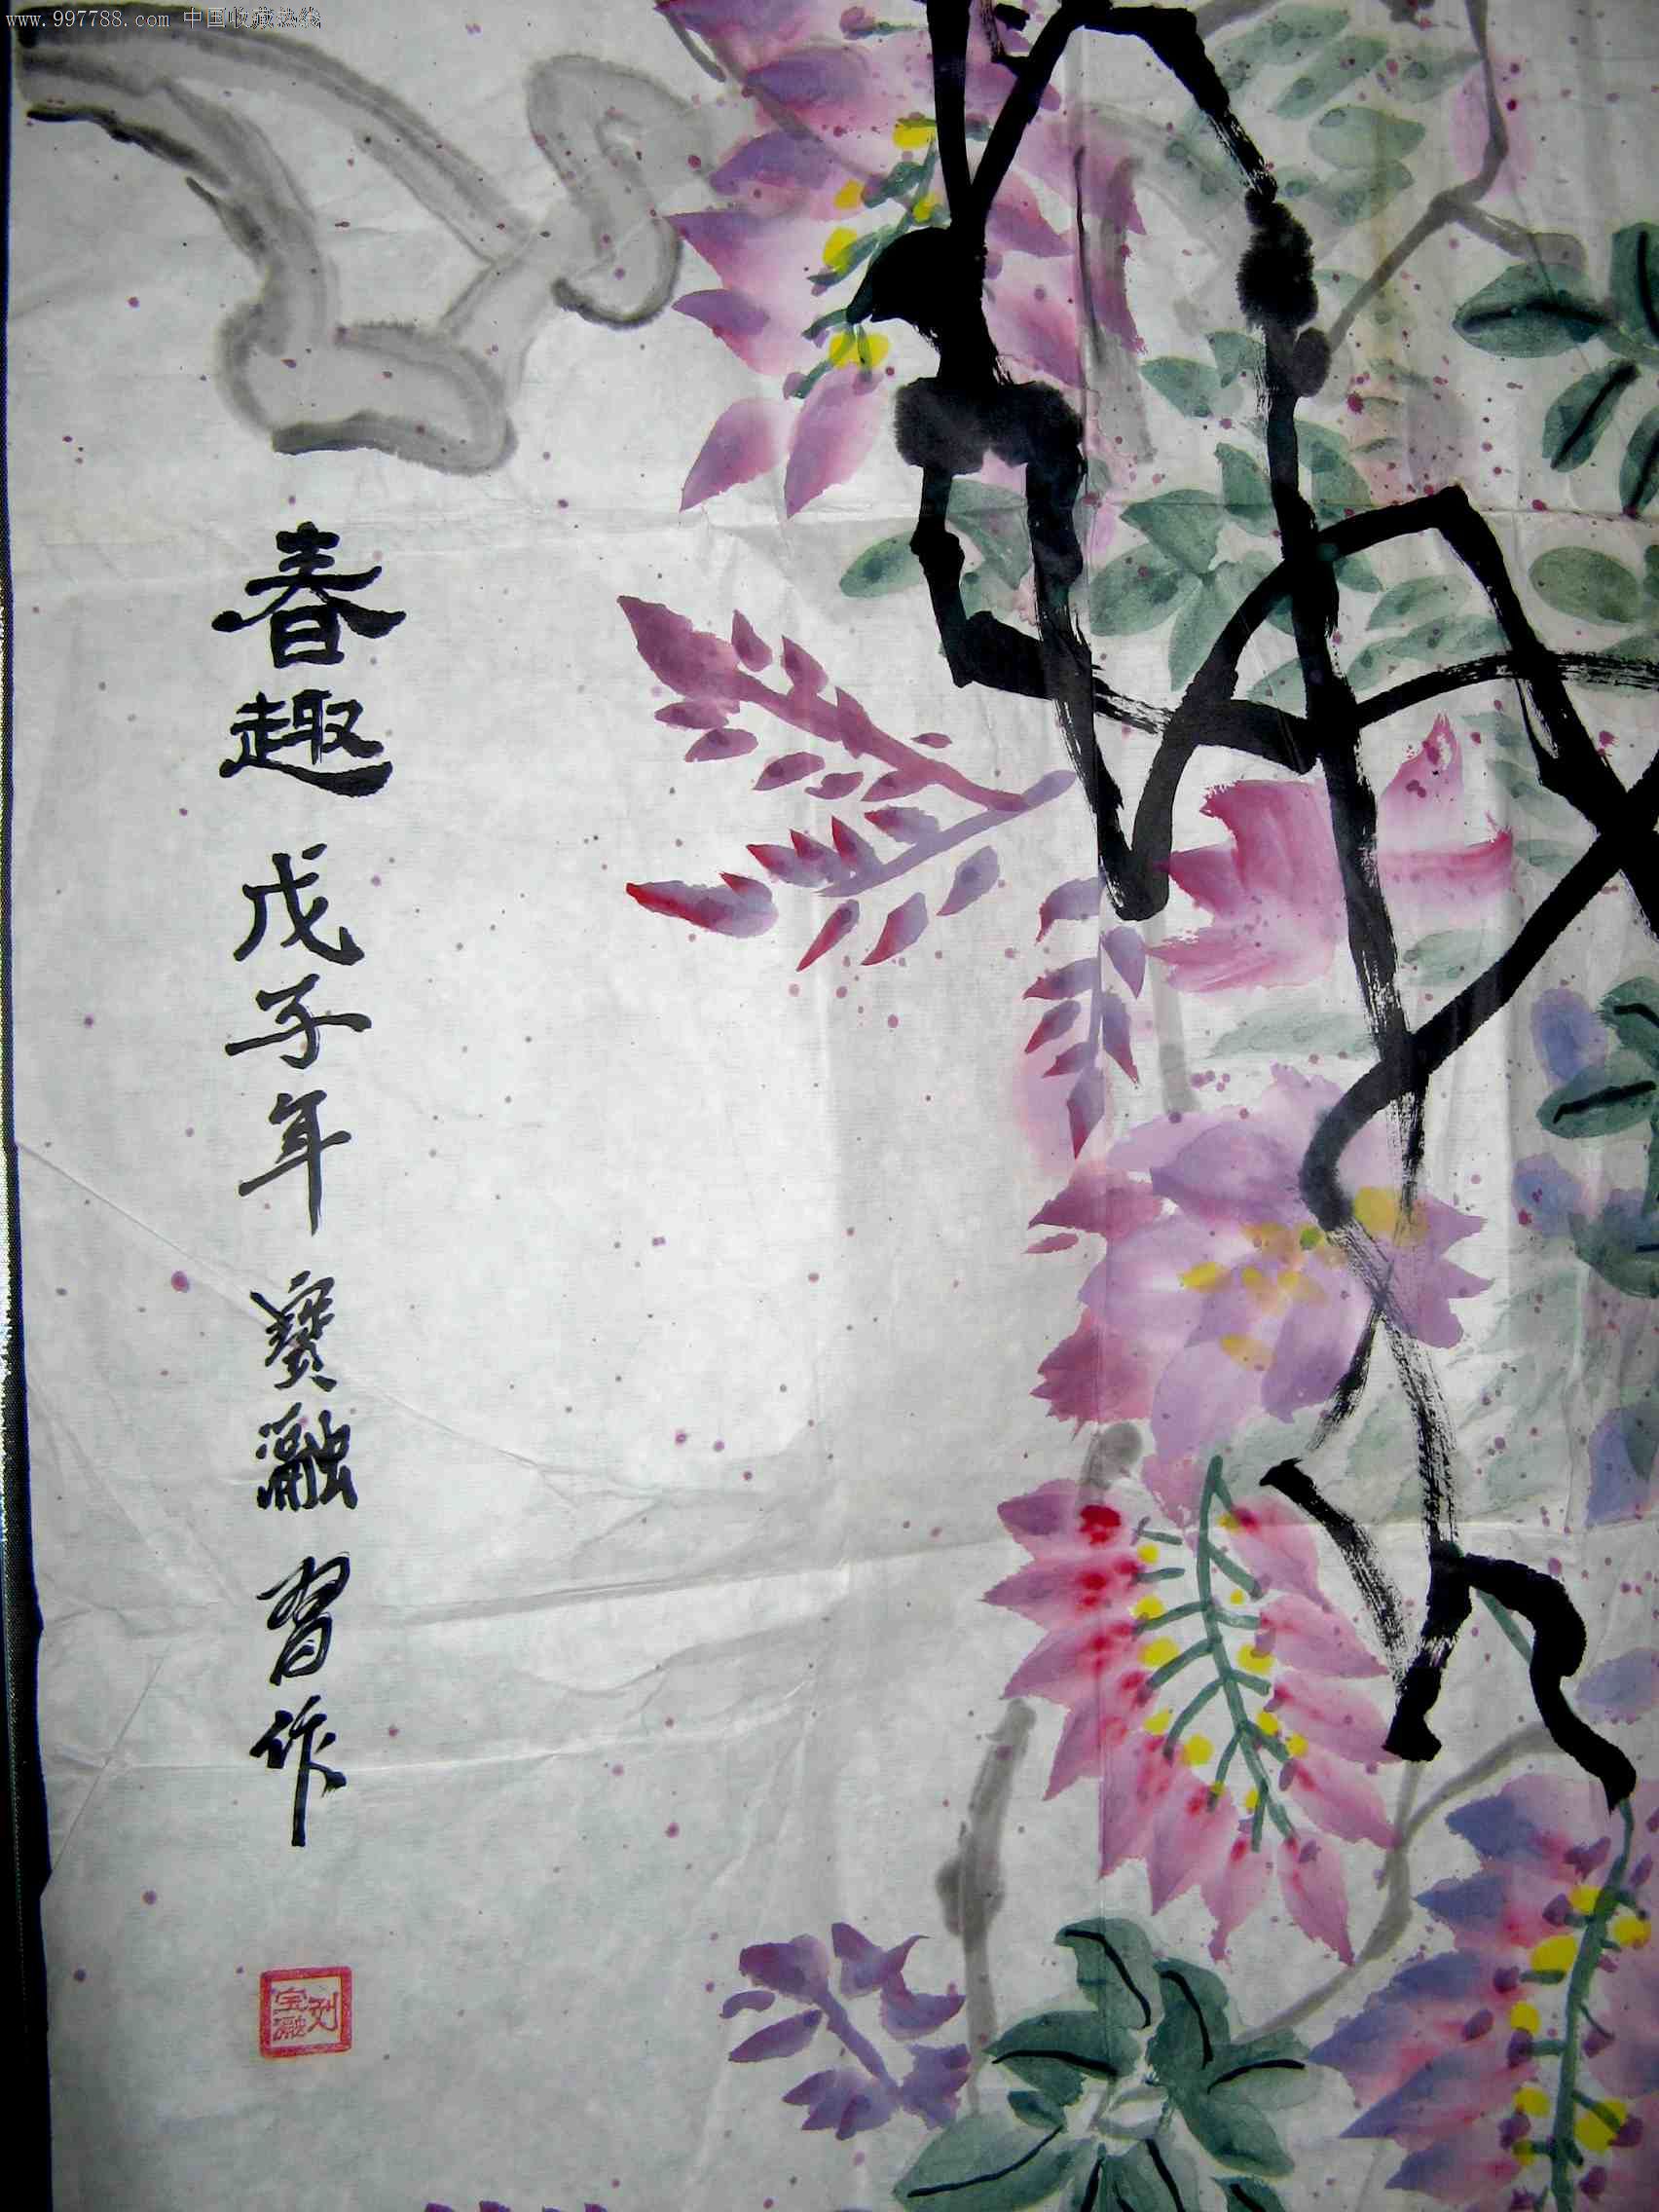 www.997788.com 中国收藏热线
春趣 戊子年 寳瀜 習作
刘宝瀜